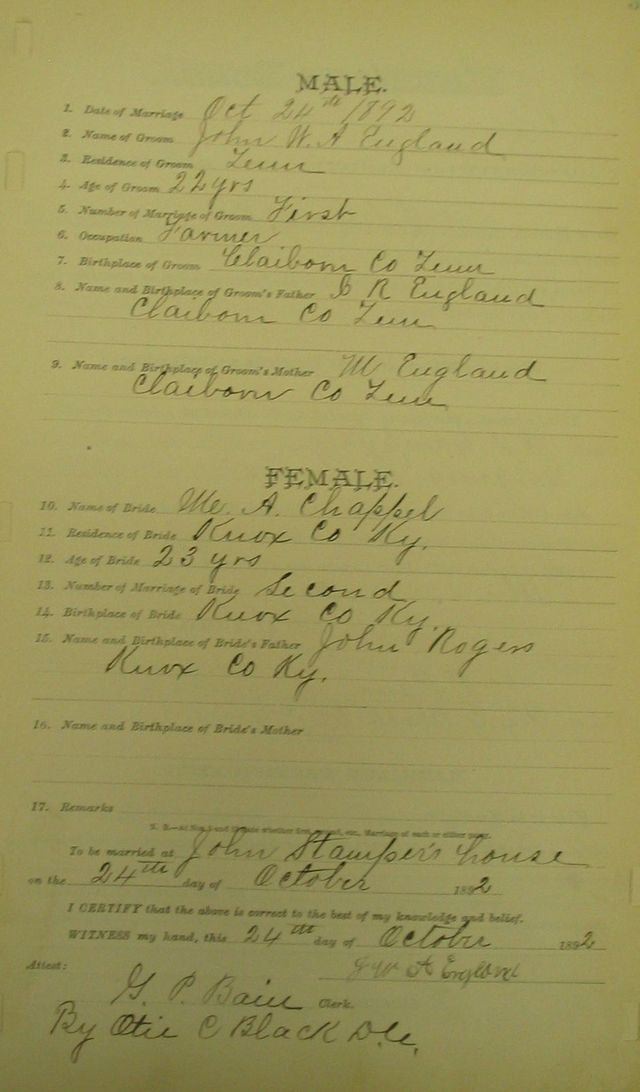 MALE.
1. Date of Marriage Oct 24th 1892
2. Name of Groom John W. A England
3. Residence of Groom Tenn
4. Age of Groom 22 yrs
5. Number of Marriage of Groom First
6. Occupation Farmer
7. Birthplace of Groom Claiborn Co Tenn
8. Name and Birthplace of Groom's Father R England
Claiborn Co Tenn
9. Name and Birthplace of Groom's Mother M England
Claiborn Co Tenn
FEMALE.
10. Name of Bride A. Chappel
11. Residence of Bride Knox Co Ky.
12. Age of Bride 23 yrs
13. Number of Marriage of Bride Second
14. Birthplace of Bride Knox Co Ky.
15. Name and Birthplace of Bride's Father John Rogers
Knox Co Ky.
16. Name and Birthplace of Bride's Mother
17. Remarks
N. B.—At Nos. 5 and 13 state whether first, second, etc., Marriage of each or either party.
To be married at John Stamper's house
on the 24th day of October 1892
I CERTIFY that the above is correct to the best of my knowledge and belief.
WITNESS my hand, this 24th day of October 1892
J W A England
Attest:
G. P. Bain Clerk.
By Otie C Black D.C.